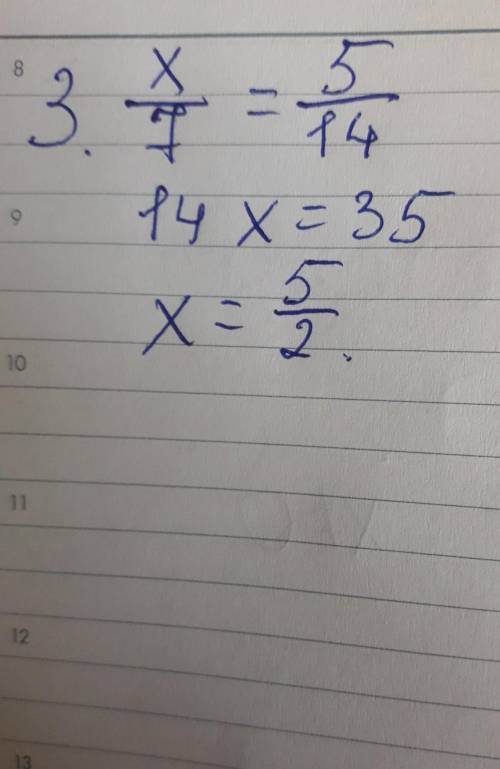 8
3. x/7 = 5/14
9
14 x = 35
x = 5/2.
10
11
12
13